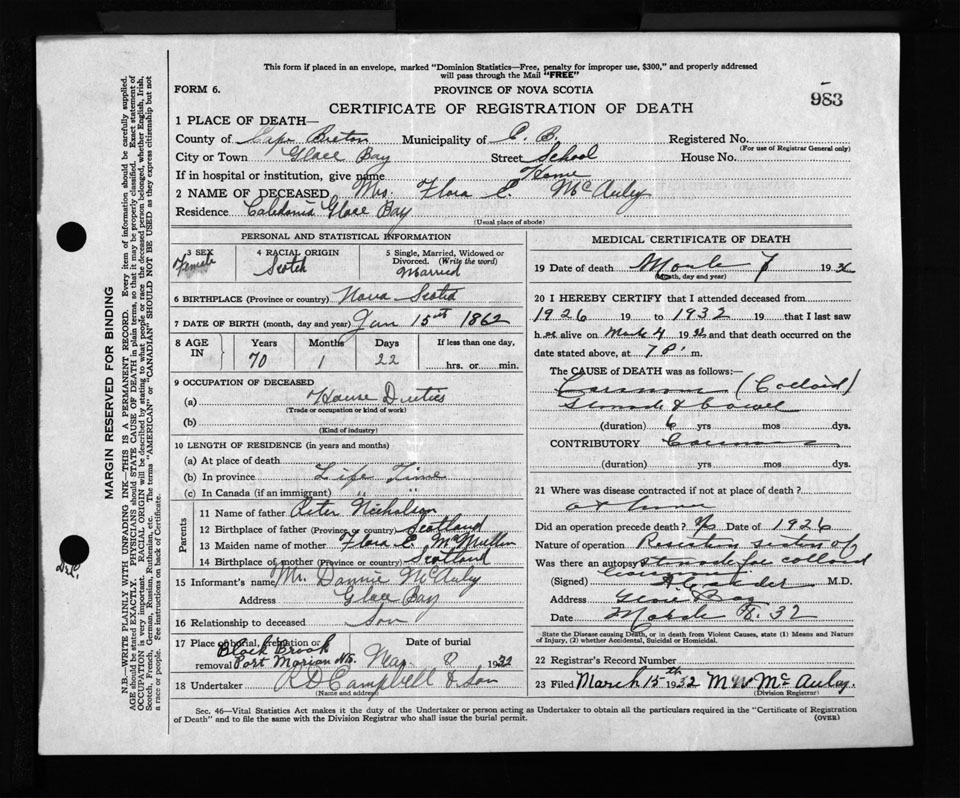 This form if placed in an envelope, marked "Dominion Statistics—Free, penalty for improper use, $300," and properly addressed
will pass through the Mail "FREE"
FORM 6.
PROVINCE OF NOVA SCOTIA
983
CERTIFICATE OF REGISTRATION OF DEATH
1 PLACE OF DEATH—
County of Cape Breton Municipality of C. B. Registered No.
(For use of Registrar General only)
City or Town Glace Bay Street School House No.
If in hospital or institution, give name Home
2 NAME OF DECEASED Mrs. Flora E. McAuly
Residence Caledonia Glace Bay
(Usual place of abode)
PERSONAL AND STATISTICAL INFORMATION
3 SEX Female
4 RACIAL ORIGIN Scotch
5 Single, Married, Widowed or Divorced. (Write the word) Married
6 BIRTHPLACE (Province or country) Nova Scotia
7 DATE OF BIRTH (month, day and year) Jan 15st 1862
8 AGE IN Years 70 Months 1 Days 22 If less than one day, hrs. or min.
9 OCCUPATION OF DECEASED
(a) House Duties
(Trade or occupation or kind of work)
(b)
(Kind of industry)
10 LENGTH OF RESIDENCE (in years and months)
(a) At place of death
(b) In province Life Time
(c) In Canada (if an immigrant) " "
Parents
11 Name of father Peter Nicholson
12 Birthplace of father (Province or country) Scotland
13 Maiden name of mother Flora E. McMullin
14 Birthplace of mother (Province or country) Scotland
15 Informant's name Mr. Dannie McAuly
Address Glace Bay
16 Relationship to deceased Son
17 Place of burial, cremation or removal Black Brook Port Morian N.S.
Date of burial Mar 8 1932
18 Undertaker R D Campbell & Son
(Name and address)
MEDICAL CERTIFICATE OF DEATH
19 Date of death March 7 193
(Month, day and year)
20 I HEREBY CERTIFY that I attended deceased from
1926 19 to 1932 19 that I last saw
h er alive on March 4 19 32 and that death occurred on the
date stated above, at 7 P. m.
The CAUSE OF DEATH was as follows:—
(Colloid)
(duration) 6 yrs mos dys.
CONTRIBUTORY
(duration) yrs mos dys.
21 Where was disease contracted if not at place of death?
at home
Did an operation precede death? Date of 1926
Nature of operation
Was there an autopsy
(Signed) M.D.
Address Glace Bay
Date March 8. 32
State the Disease causing Death, or in death from Violent Causes, state (1) Means and Nature
of Injury, (2) whether Accidental, Suicidal or Homicidal.
22 Registrar's Record Number
23 Filed March 15th 1932 M W McAulay.
(Division Registrar)
Sec. 46—Vital Statistics Act makes it the duty of the Undertaker or person acting as Undertaker to obtain all the particulars required in the "Certificate of Registration
of Death" and to file the same with the Division Registrar who shall issue the burial permit.
(OVER)
MARGIN RESERVED FOR BINDING
N.B.—WRITE PLAINLY WITH UNFADING INK—THIS IS A PERMANENT RECORD. Every item of information should be carefully supplied.
AGE should be stated EXACTLY. PHYSICIANS should STATE CAUSE OF DEATH in plain terms, so that it may be properly classified. Exact statement of
OCCUPATION is very important. RACIAL ORIGIN will be described by stating to what people or race the deceased person belonged, whether English, Irish,
Scotch, French, German, Russian, Ruthenian, etc. The terms "AMERICAN" or "CANADIAN" SHOULD NOT BE USED as they express citizenship but not
a race or people. See instructions on back of Certificate.